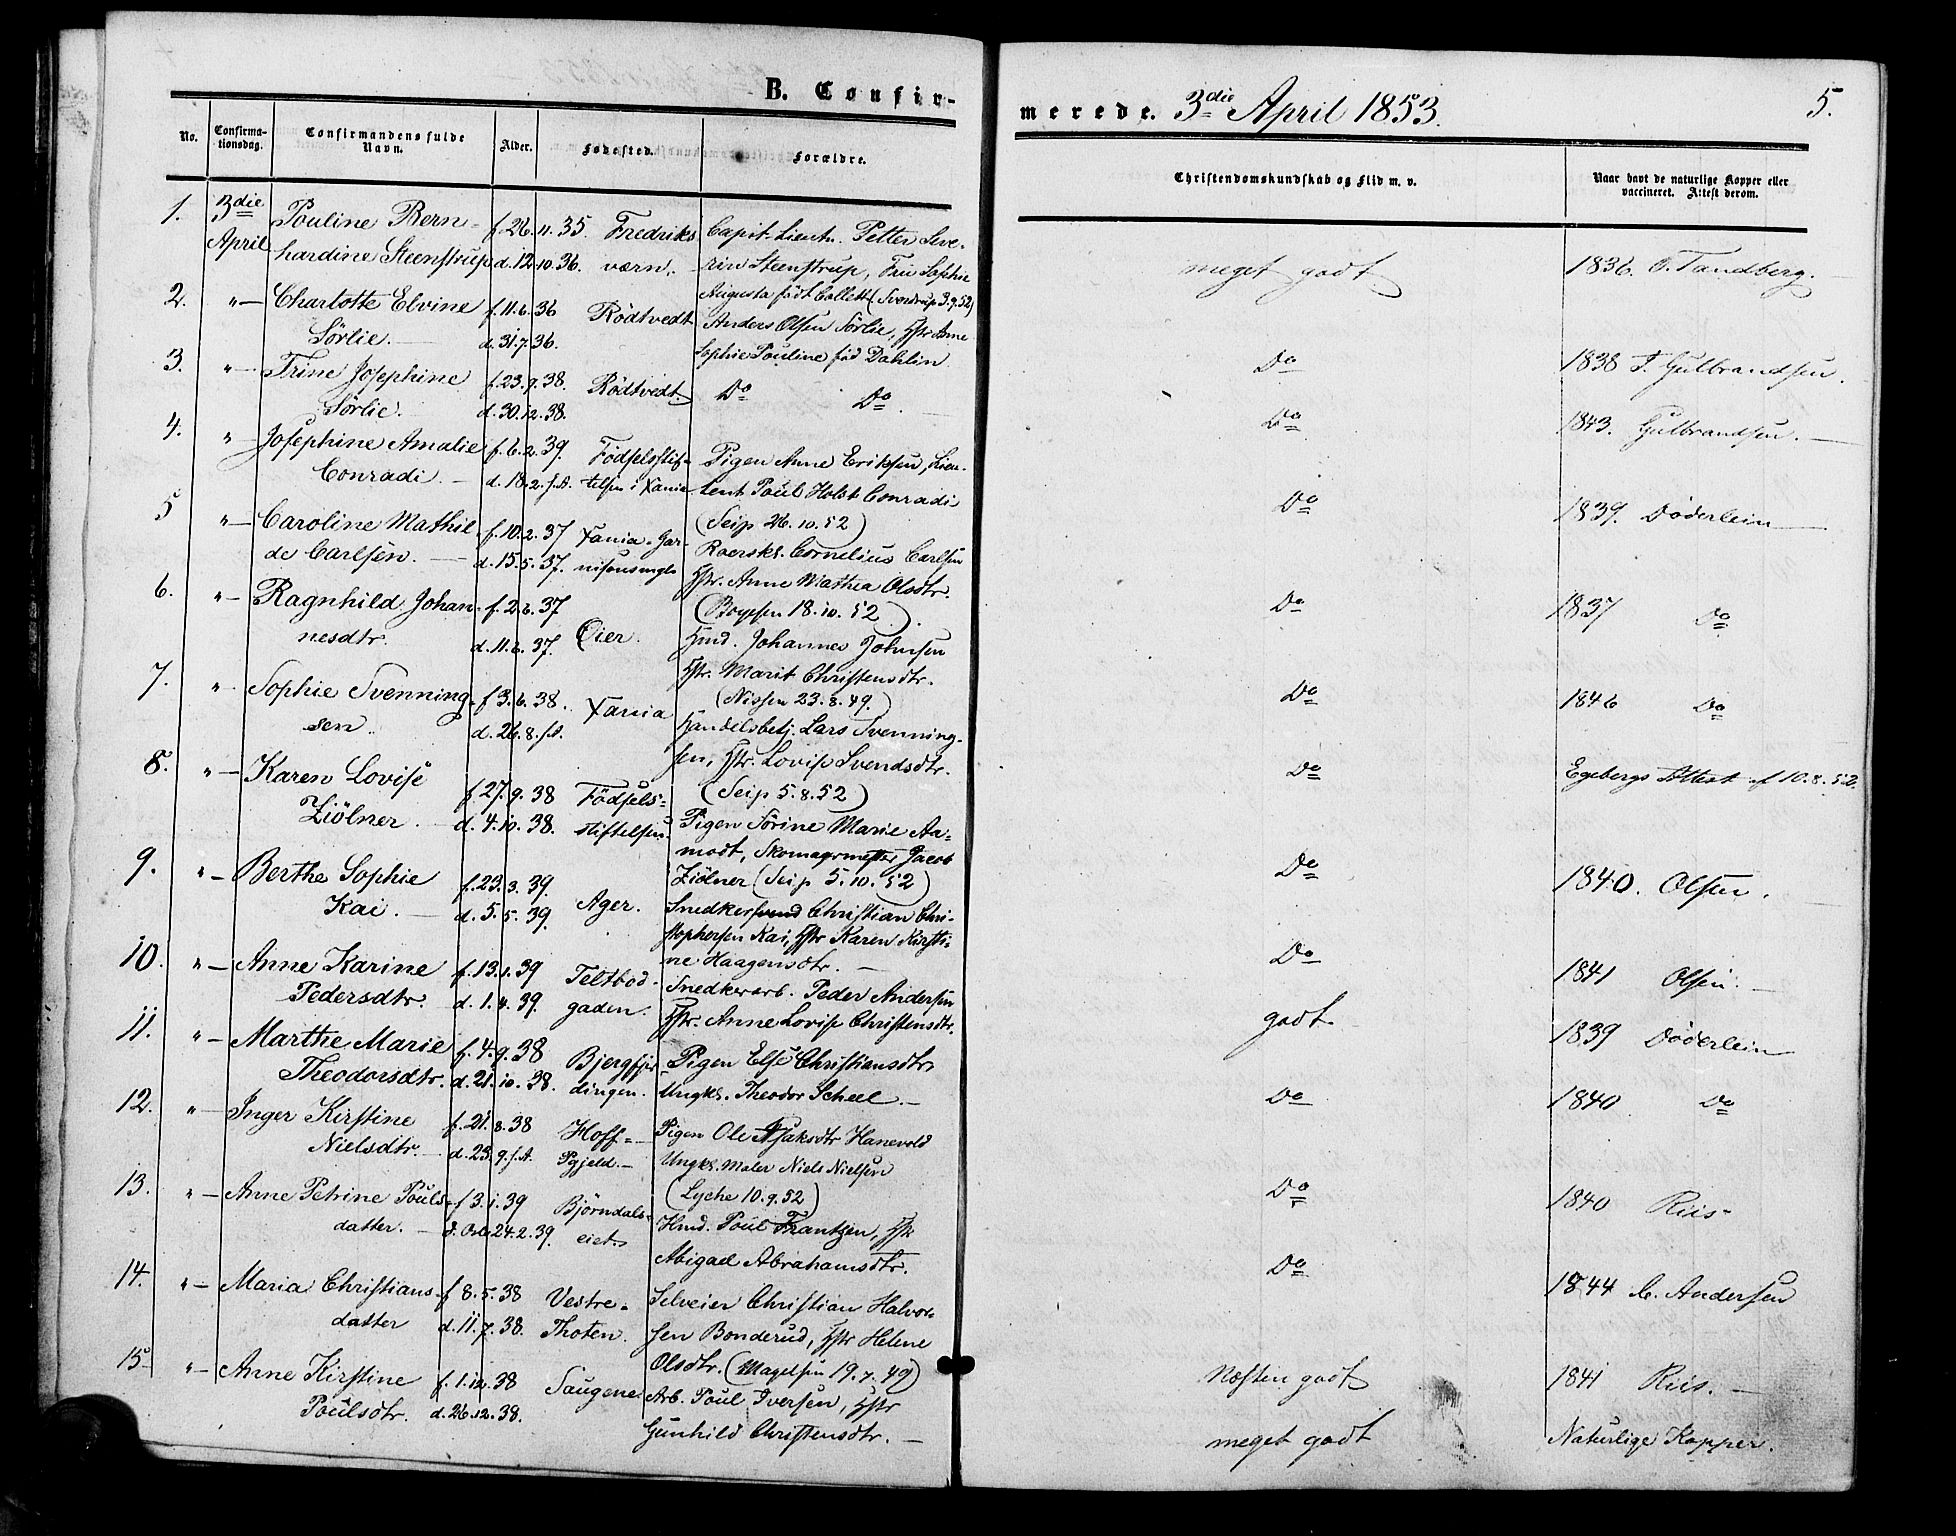 B. Confir-
merede. 3die April 1853.
5.
No. Confirmationsdag. Confirmandens fulde Navn. Alder. Fødested. Forældre.
Christendomskundskab og Flid m. v. Naar havt de naturlige Kopper eller vaccineret. Attest derom.
1. 3die Pouline Bern- f. 26.11.35 Fredriks Capit. Lieutn. Petter Seve-
April hardine Steenstrup d. 12.10.36. værn. rin Steenstrup, Frue Sophie
Augusta født Collett (Sverdrup 3.9.52)
meget godt 1836. C. Tandberg.
2. " Charlotte Elvine f. 11.6.36 Rödtvedt Anders Olsen Sörlie, Hstr Anne
Sörlie. d. 31.7.36. Sophie Pouline föd Dahlin
Do 1838 F. Gulbrandsen.
3. " Trine Josephine f. 23.9.38. Rödtvedt Do Do.
Sörlie. d. 30.12.38.
Do 1843. Gulbrandsen.
4. " Josephine Amalie f. 6.2.39. Födselsstif- Pigen Anne Eriksen, Lieu-
Conradi. d. 18.2.s.A. telsen i Xania tent Poul Holst Conradi
(Seip 26.10.52)
Do 1839. Döderlein
5 " Caroline Mathil- f. 10.2.37 Xania Gar- Roerskl. Cornelius Carlsen
de Carlsen. d. 15.5.37. nisonsmgh Hstr. Anne Mathea Olsdtr.
(Boyesen 18.10.52).
Do 1837 Do
6. " Ragnhild Johan- f. 2.6.37 Öier. Hmd. Johannes Johnsen
nesdtr. d. 11.6.37. Hstr. Marit Christensdtr.
(Nissen 23.8.49.)
Do 1846 Do
7. " Sophie Svenning- f. 3.6.38. Xania Handelsbetj. Lars Svenning-
sen. d. 26.8.s.A. sen, Hstr. Lovise Svendsdtr.
(Seip 5.8.52)
Do Egebergs Attest af 10.8.52.
8. " Karen Lovise f. 27.9.38 Födsels- Pigen Sörine Marie Aa-
Ziölner. d. 4.10.38. stiftelsen. modt, Skomagermester Jacob
Ziölner (Seip 5.10.52)
Do 1840. Olsen.
9. " Berthe Sophie f. 23.3.39. Ager. Snedkersvend Christian Chri-
Kai. d. 5.5.39. stophersen Kai, Hstr Karen Kirsti-
ne Haagensdtr.
Do 1841 Olsen.
10. " Anne Karine f. 13.1.39 Teltbod- Snedkerarb. Peder Andersen
Pedersdtr. d. 1.4.39. gaden. Hstr. Anne Lovise Christensdtr.
godt 1839 Döderlein
11. " Marthe Marie f. 4.9.38 Bjergfjer- Pigen Else Christiansdtr,
Theodorsdtr. d. 21.10.38. dingen. Ungkl. Theodor Scheel.
Do 1840 Do
12. " Inger Kirstine f. 21.8.38 Hoff- Pigen Ole Isaksdtr Hanevold
Nielsdtr. d. 23.9.s.A. Pgjeld. Ungkl. Maler Niels Nielsen
(Lyche 10.9.52)
Do 1840 Riis
13. " Anne Petrine Pouls- f 3.1.39 Björndals- Hmd. Poul Frantzen, Hstr
datter. d. Oslo 24.2.39. eiet. Abigael Abrahamsdtr.
Do 1844 C. Andersen
14. " Maria Christians- f 8.5.38 Vestre- Selveier Christian Halvor-
datter d. 11.7.38. Thoten. sen Bonderud, Hstr Helene
Olsdtr. (Magelsen 19.7.49)
Næsten godt 1841 Riis.
15 " Anne Kirstine f. 1.12.38 Saugene Arb. Poul Iversen, Hstr
Poulsdtr. d. 26.12.38. Gunhild Christensdtr.
meget godt Naturlige Kopper.